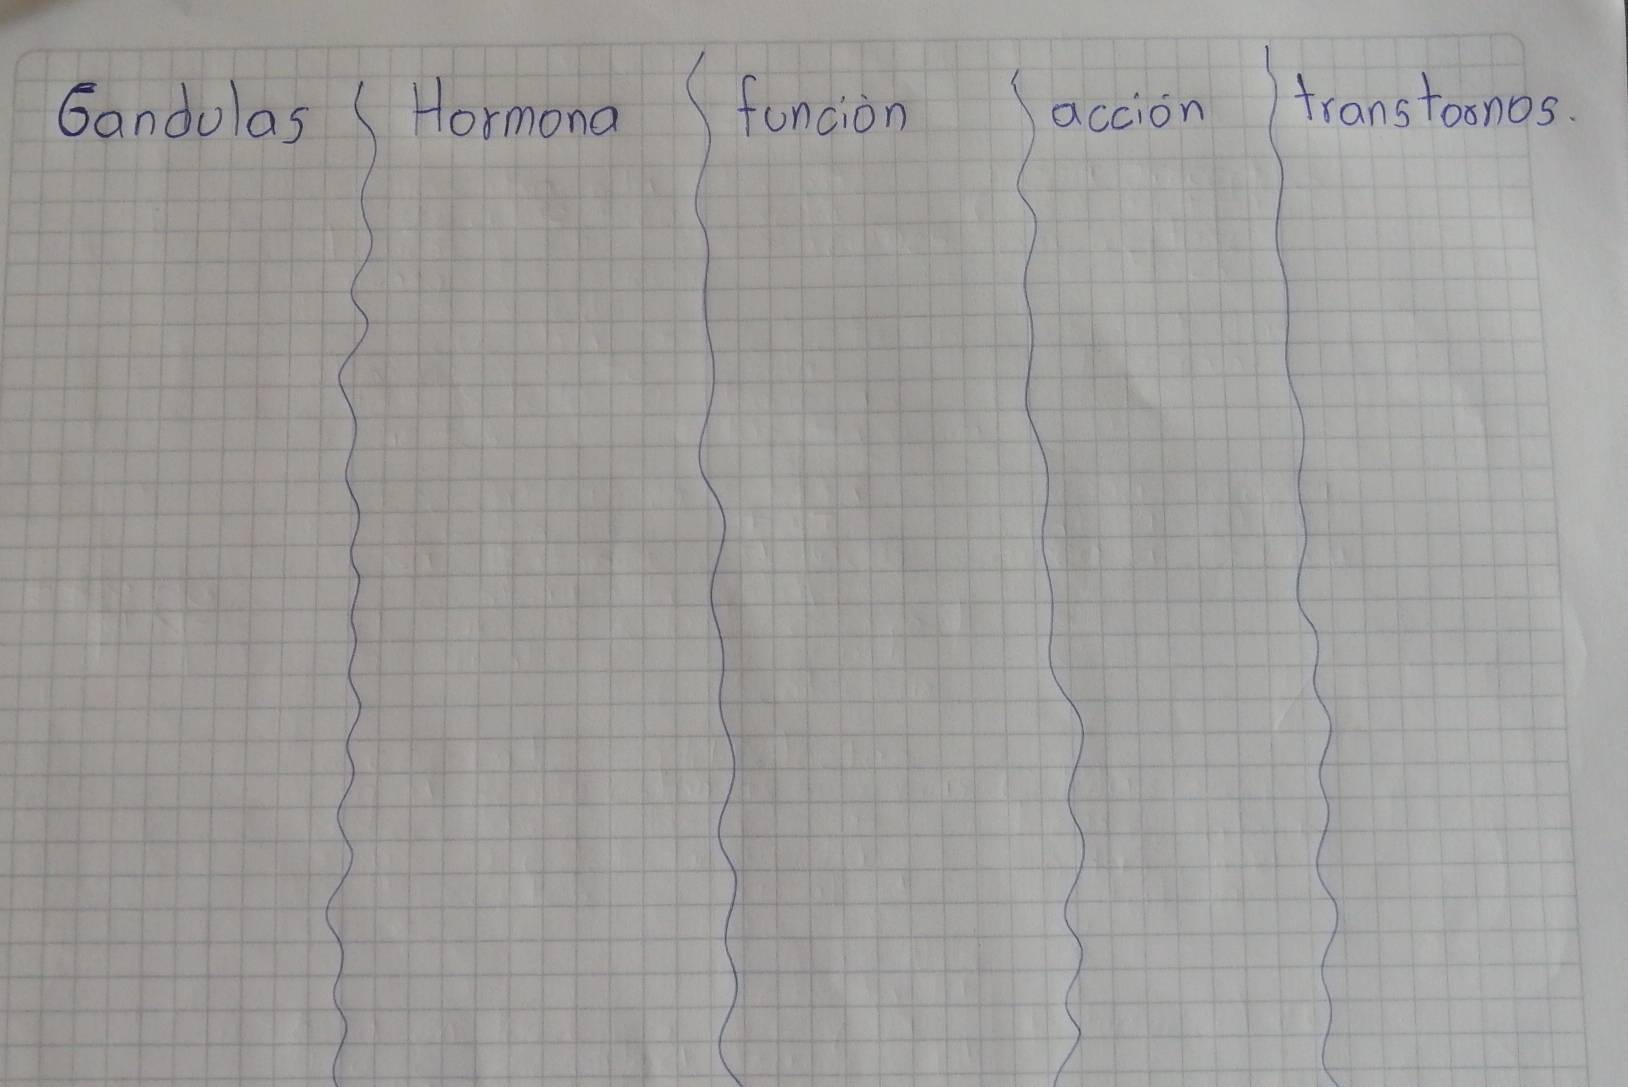 Gandulas Hormona función acción transtornos.